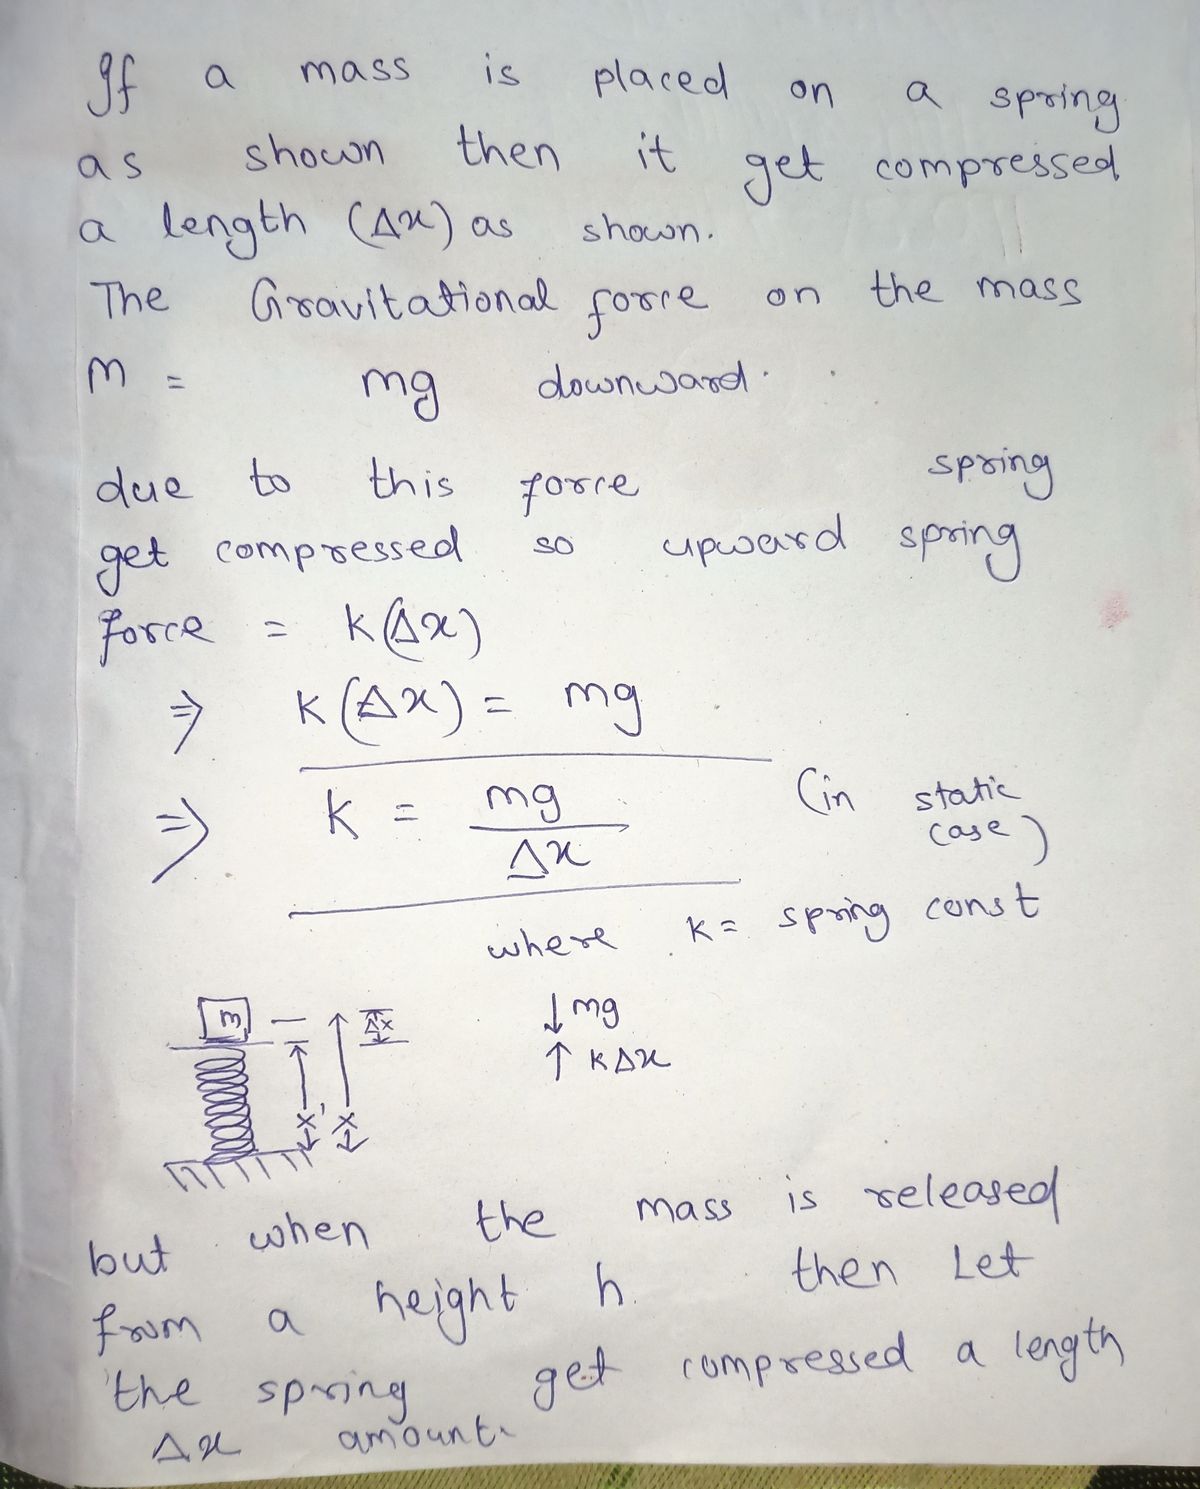 If a mass is placed on a spring
as shown then it get compressed
a length (Δx) as shown.
The Gravitational force on the mass
m = mg downward.
due to this force spring
get compressed so upward spring
force = K(Δx)
⇒ K(Δx) = mg
⇒ K = mg/Δx (in static case)
where K = spring const
m
Δx
x'
x
↓ mg
↑ KΔx
but when the mass is released
from a height h. then Let
the spring get compressed a length
Δx amount.